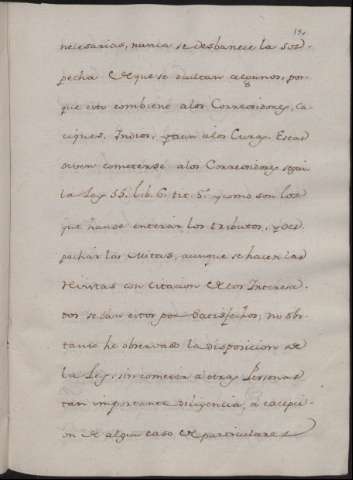 necesarias, nunca se desbanece la Sos-
pecha de que se ocultan algunos, por-
que esto combiene a los Corregidores, Ca-
ciques, Indios, y aun a los Curas. Estas
deven cometerse a los Corregidores segun
la Ley 55. lib. 6. tit. 5. y como son los
que han de enterar los tributos, y des-
pachar las Mitas, aunque se hacen las
Revisitas con citacion de los Interesa-
dos se dan estos por Satisfechos; no obs-
tante he observado la disposicion de
la Ley, sin cometer a otras Personas
tan importante diligencia, a excepci-
on de algun caso de particulares